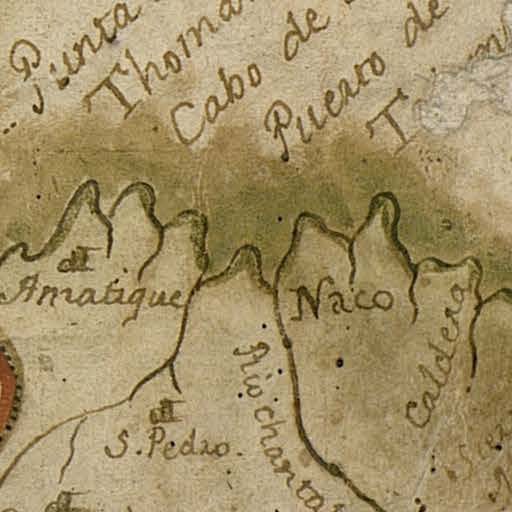 Punta
Thoma
Cabo de
Puerto de
Amatique
Naco
Caldera
Rio chanta
S. Pedro.